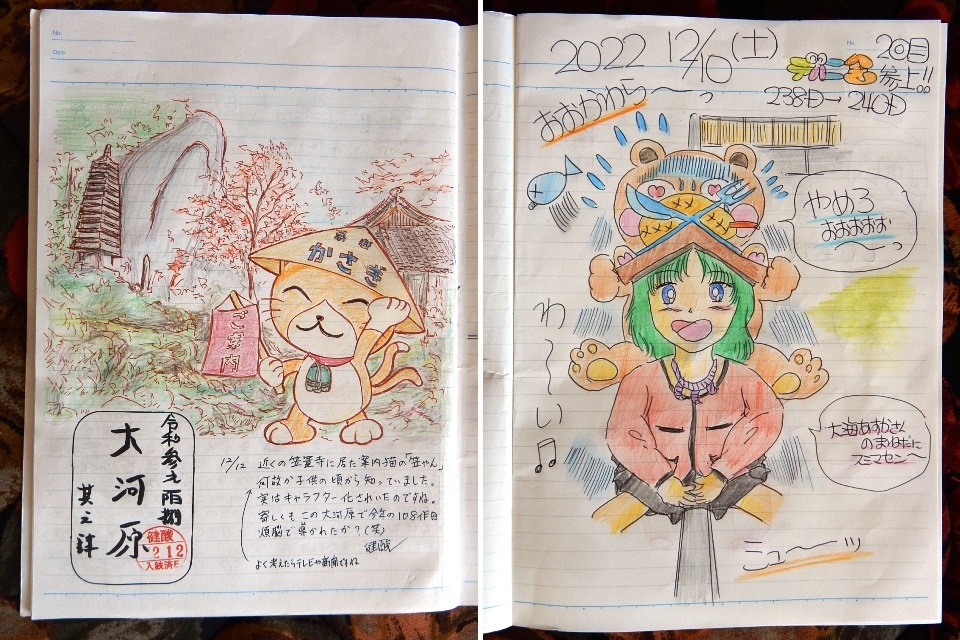 No.
Date
かさぎ
ご案内
大河原
12/12 近くの笠置寺に居た案内猫の「笠やん」
何故か子供の頃から知っていました。
実はキャラクター化されいたのですね。
奇しくもこの大河原で今年の108作目
煩脳で導かれたか?(笑)
健酸
よく考えたらテレビや新聞ですね
健酸
2 12
入鋏済
No.
2022 12/10(土)
20回目
参上!!
238日→240日
おおかわら〜っ
やめろ
おおおおお
〜っ
わ〜い♫
大海あすかさん
のまねたに
スミマセン〜
ニュ〜〜ッ